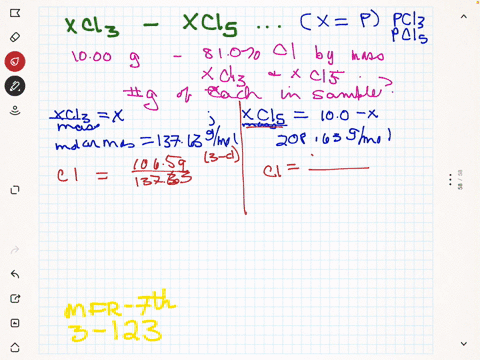 XCl3 - XCl5 ... (X = P) PCl3
PCl5
10.00 g - 81.0% Cl by mass
XCl3 & XCl5
#g of each in sample?
XCl3 = X ; XCl5 = 10.0 - x
mass
molar mass = 137.63 g/mol 208.63 g/mol
(3-Cl)
Cl = 106.5g Cl =
137.33
MFR-7th
3-123